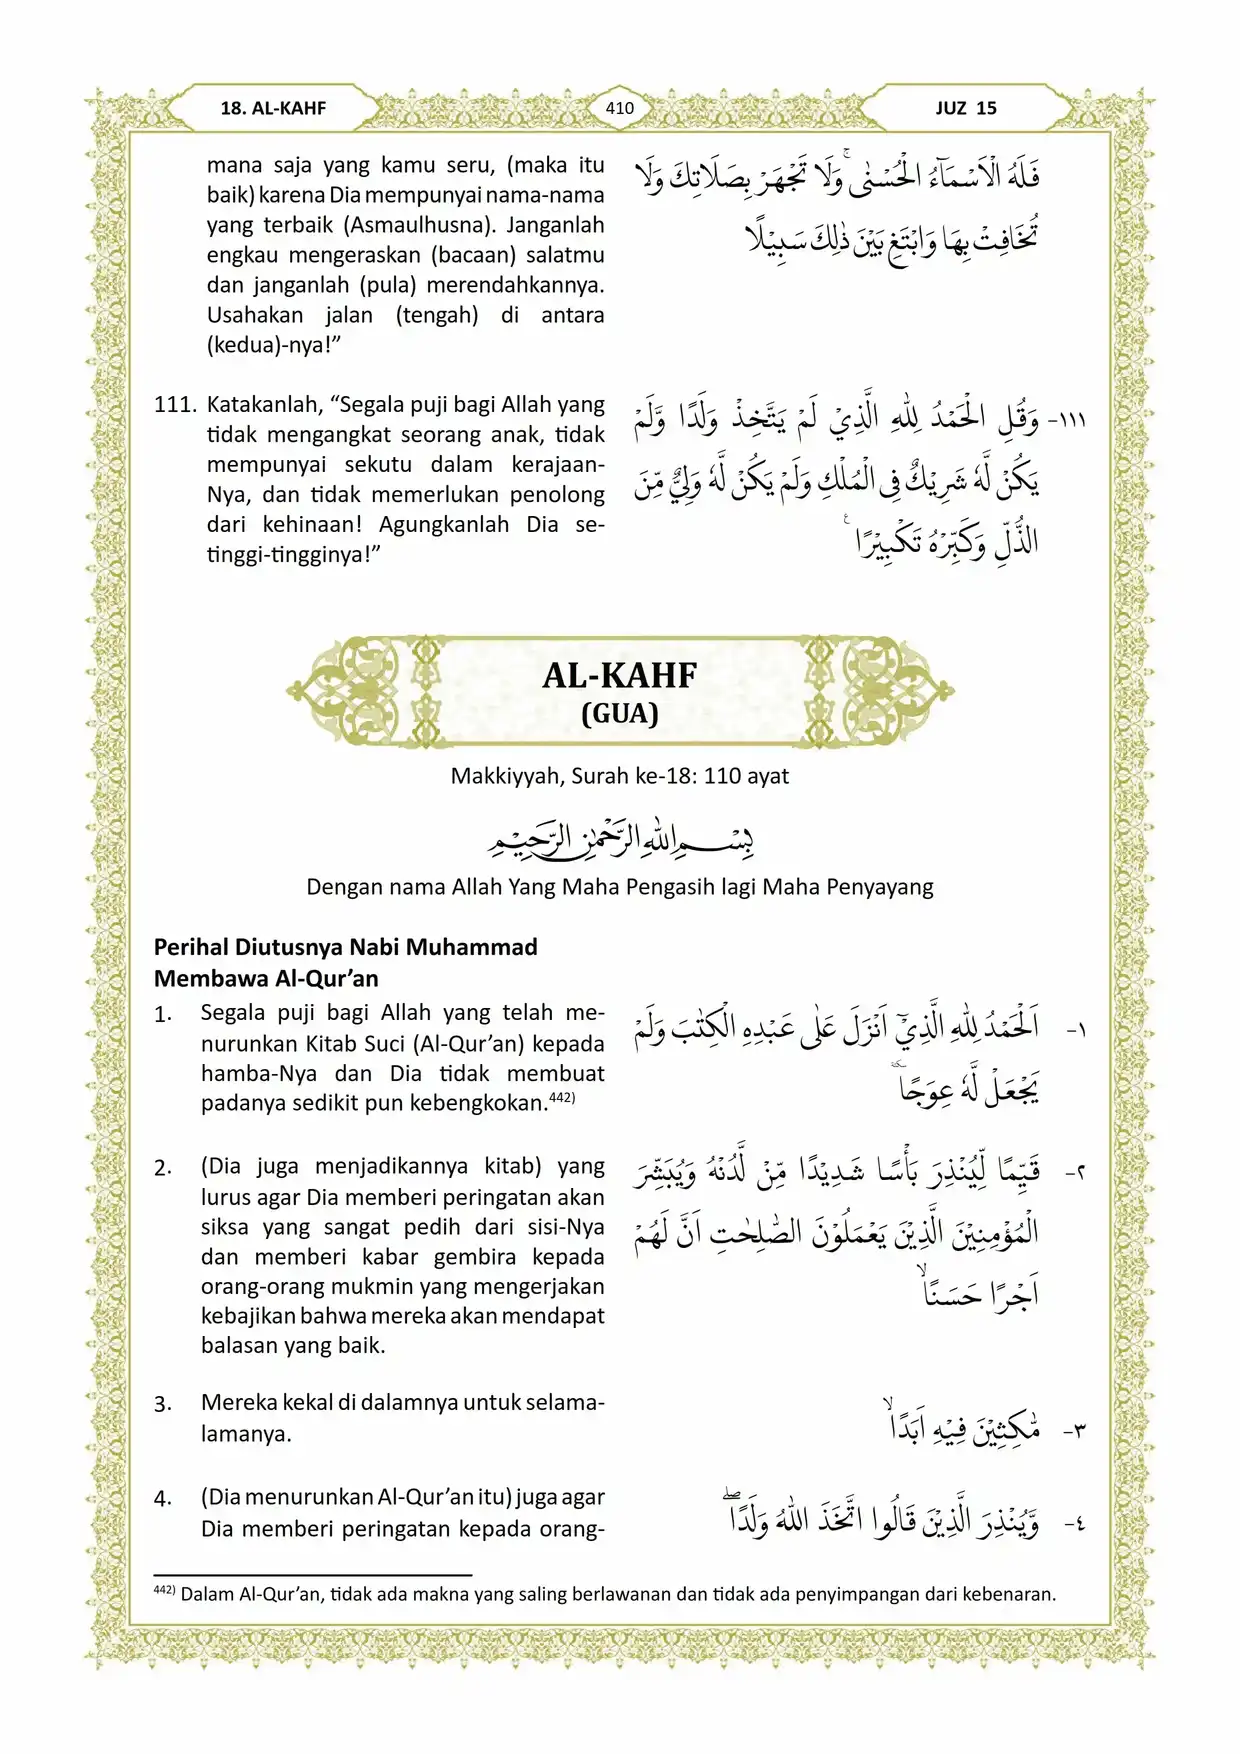 18. AL-KAHF
410
JUZ 15
mana saja yang kamu seru, (maka itu
baik) karena Dia mempunyai nama-nama
yang terbaik (Asmaulhusna). Janganlah
engkau mengeraskan (bacaan) salatmu
dan janganlah (pula) merendahkannya.
Usahakan jalan (tengah) di antara
(kedua)-nya!”
فَلَهُ الْاَسْمَاۤءُ الْحُسْنٰىۚ وَلَا تَجْهَرْ بِصَلَاتِكَ وَلَا
تُخَافِتْ بِهَا وَابْتَغِ بَيْنَ ذٰلِكَ سَبِيْلًا
111. Katakanlah, “Segala puji bagi Allah yang
tidak mengangkat seorang anak, tidak
mempunyai sekutu dalam kerajaan-
Nya, dan tidak memerlukan penolong
dari kehinaan! Agungkanlah Dia se-
tinggi-tingginya!”
١١١- وَقُلِ الْحَمْدُ لِلّٰهِ الَّذِيْ لَمْ يَتَّخِذْ وَلَدًا وَّلَمْ
يَكُنْ لَّهٗ شَرِيْكٌ فِى الْمُلْكِ وَلَمْ يَكُنْ لَّهٗ وَلِيٌّ مِّنَ
الذُّلِّ وَكَبِّرْهُ تَكْبِيْرًا ࣖ
AL-KAHF
(GUA)
Makkiyyah, Surah ke-18: 110 ayat
بِسْمِ اللّٰهِ الرَّحْمٰنِ الرَّحِيْمِ
Dengan nama Allah Yang Maha Pengasih lagi Maha Penyayang
Perihal Diutusnya Nabi Muhammad
Membawa Al-Qur’an
1. Segala puji bagi Allah yang telah me-
nurunkan Kitab Suci (Al-Qur’an) kepada
hamba-Nya dan Dia tidak membuat
padanya sedikit pun kebengkokan.442)
١- اَلْحَمْدُ لِلّٰهِ الَّذِيْٓ اَنْزَلَ عَلٰى عَبْدِهِ الْكِتٰبَ وَلَمْ
يَجْعَلْ لَّهٗ عِوَجًاۜ
2. (Dia juga menjadikannya kitab) yang
lurus agar Dia memberi peringatan akan
siksa yang sangat pedih dari sisi-Nya
dan memberi kabar gembira kepada
orang-orang mukmin yang mengerjakan
kebajikan bahwa mereka akan mendapat
balasan yang baik.
٢- قَيِّمًا لِّيُنْذِرَ بَأْسًا شَدِيْدًا مِّنْ لَّدُنْهُ وَيُبَشِّرَ
الْمُؤْمِنِيْنَ الَّذِيْنَ يَعْمَلُوْنَ الصّٰلِحٰتِ اَنَّ لَهُمْ
اَجْرًا حَسَنًاۙ
3. Mereka kekal di dalamnya untuk selama-
lamanya.
٣- مّٰكِثِيْنَ فِيْهِ اَبَدًاۙ
4. (Dia menurunkan Al-Qur’an itu) juga agar
Dia memberi peringatan kepada orang-
٤- وَّيُنْذِرَ الَّذِيْنَ قَالُوا اتَّخَذَ اللّٰهُ وَلَدًاۖ
442) Dalam Al-Qur’an, tidak ada makna yang saling berlawanan dan tidak ada penyimpangan dari kebenaran.